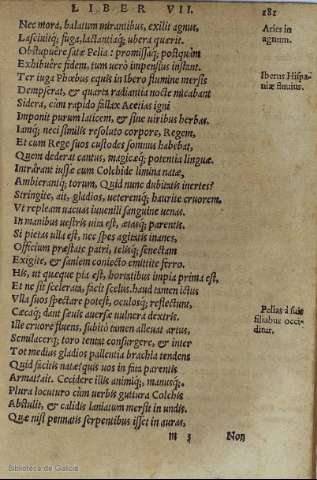 LIBER VII. 181
Nec mora, balatum mirantibus, exilit agnus,
Lasciuitq; fuga, lactantiaq; ubera quærit.
Obstupuêre satæ Pelia: promissaq; postquàm
Exhibuêre fidem, tum uerò impensius instant.
Ter iuga Phœbus equis in Ibero flumine mersis
Dempserat, & quarta radiantia nocte micabant
Sidera, cùm rapido fallax Aeetias igni
Imponit purum laticem, & sine uiribus herbas.
Iamq; neci similis resoluto corpore, Regem,
Et cum Rege suos custodes somnus habebat,
Quem dederat cantus, magicæq; potentia linguæ.
Intrârant iussæ cum Colchide limina natæ,
Ambierantq; torum, Quid nunc dubitatis inertes?
Stringite, ait, gladios, ueteremq; haurite cruorem,
Vt repleam uacuas iuuenili sanguine uenas.
In manibus uestris uita est, ætasq; parentis.
Si pietas ulla est, nec spes agitatis inanes,
Officium præstate patri, telisq; senectam
Exigite, & saniem coniecto emittite ferro.
His, ut quæque pia est, hortatibus impia prima est,
Et ne sit scelerata, facit scelus. haud tamen ictus
Vlla suos spectare potest, oculosq; reflectunt,
Cæcaq; dant sæuis auersæ uulnera dextris.
Ille cruore fluens, subitò tamen alleuat artus,
Semilacerq; toro tentat consurgere, & inter
Tot medius gladios pallentia brachia tendens
Quid facitis natæ? quis uos in fata parentis
Armat? ait. Cecidere illis animiq; manusq;.
Plura locuturo cùm uerbis guttura Colchis
Abstulit, & calidis laniatum mersit in undis.
Quæ nisi pennatis serpentibus isset in auras,
m 3 Non
Aries in
agnum.
Iberus Hispa-
niæ fluuius.
Pelias à suis
filiabus occi-
ditur.
Biblioteca de Galicia